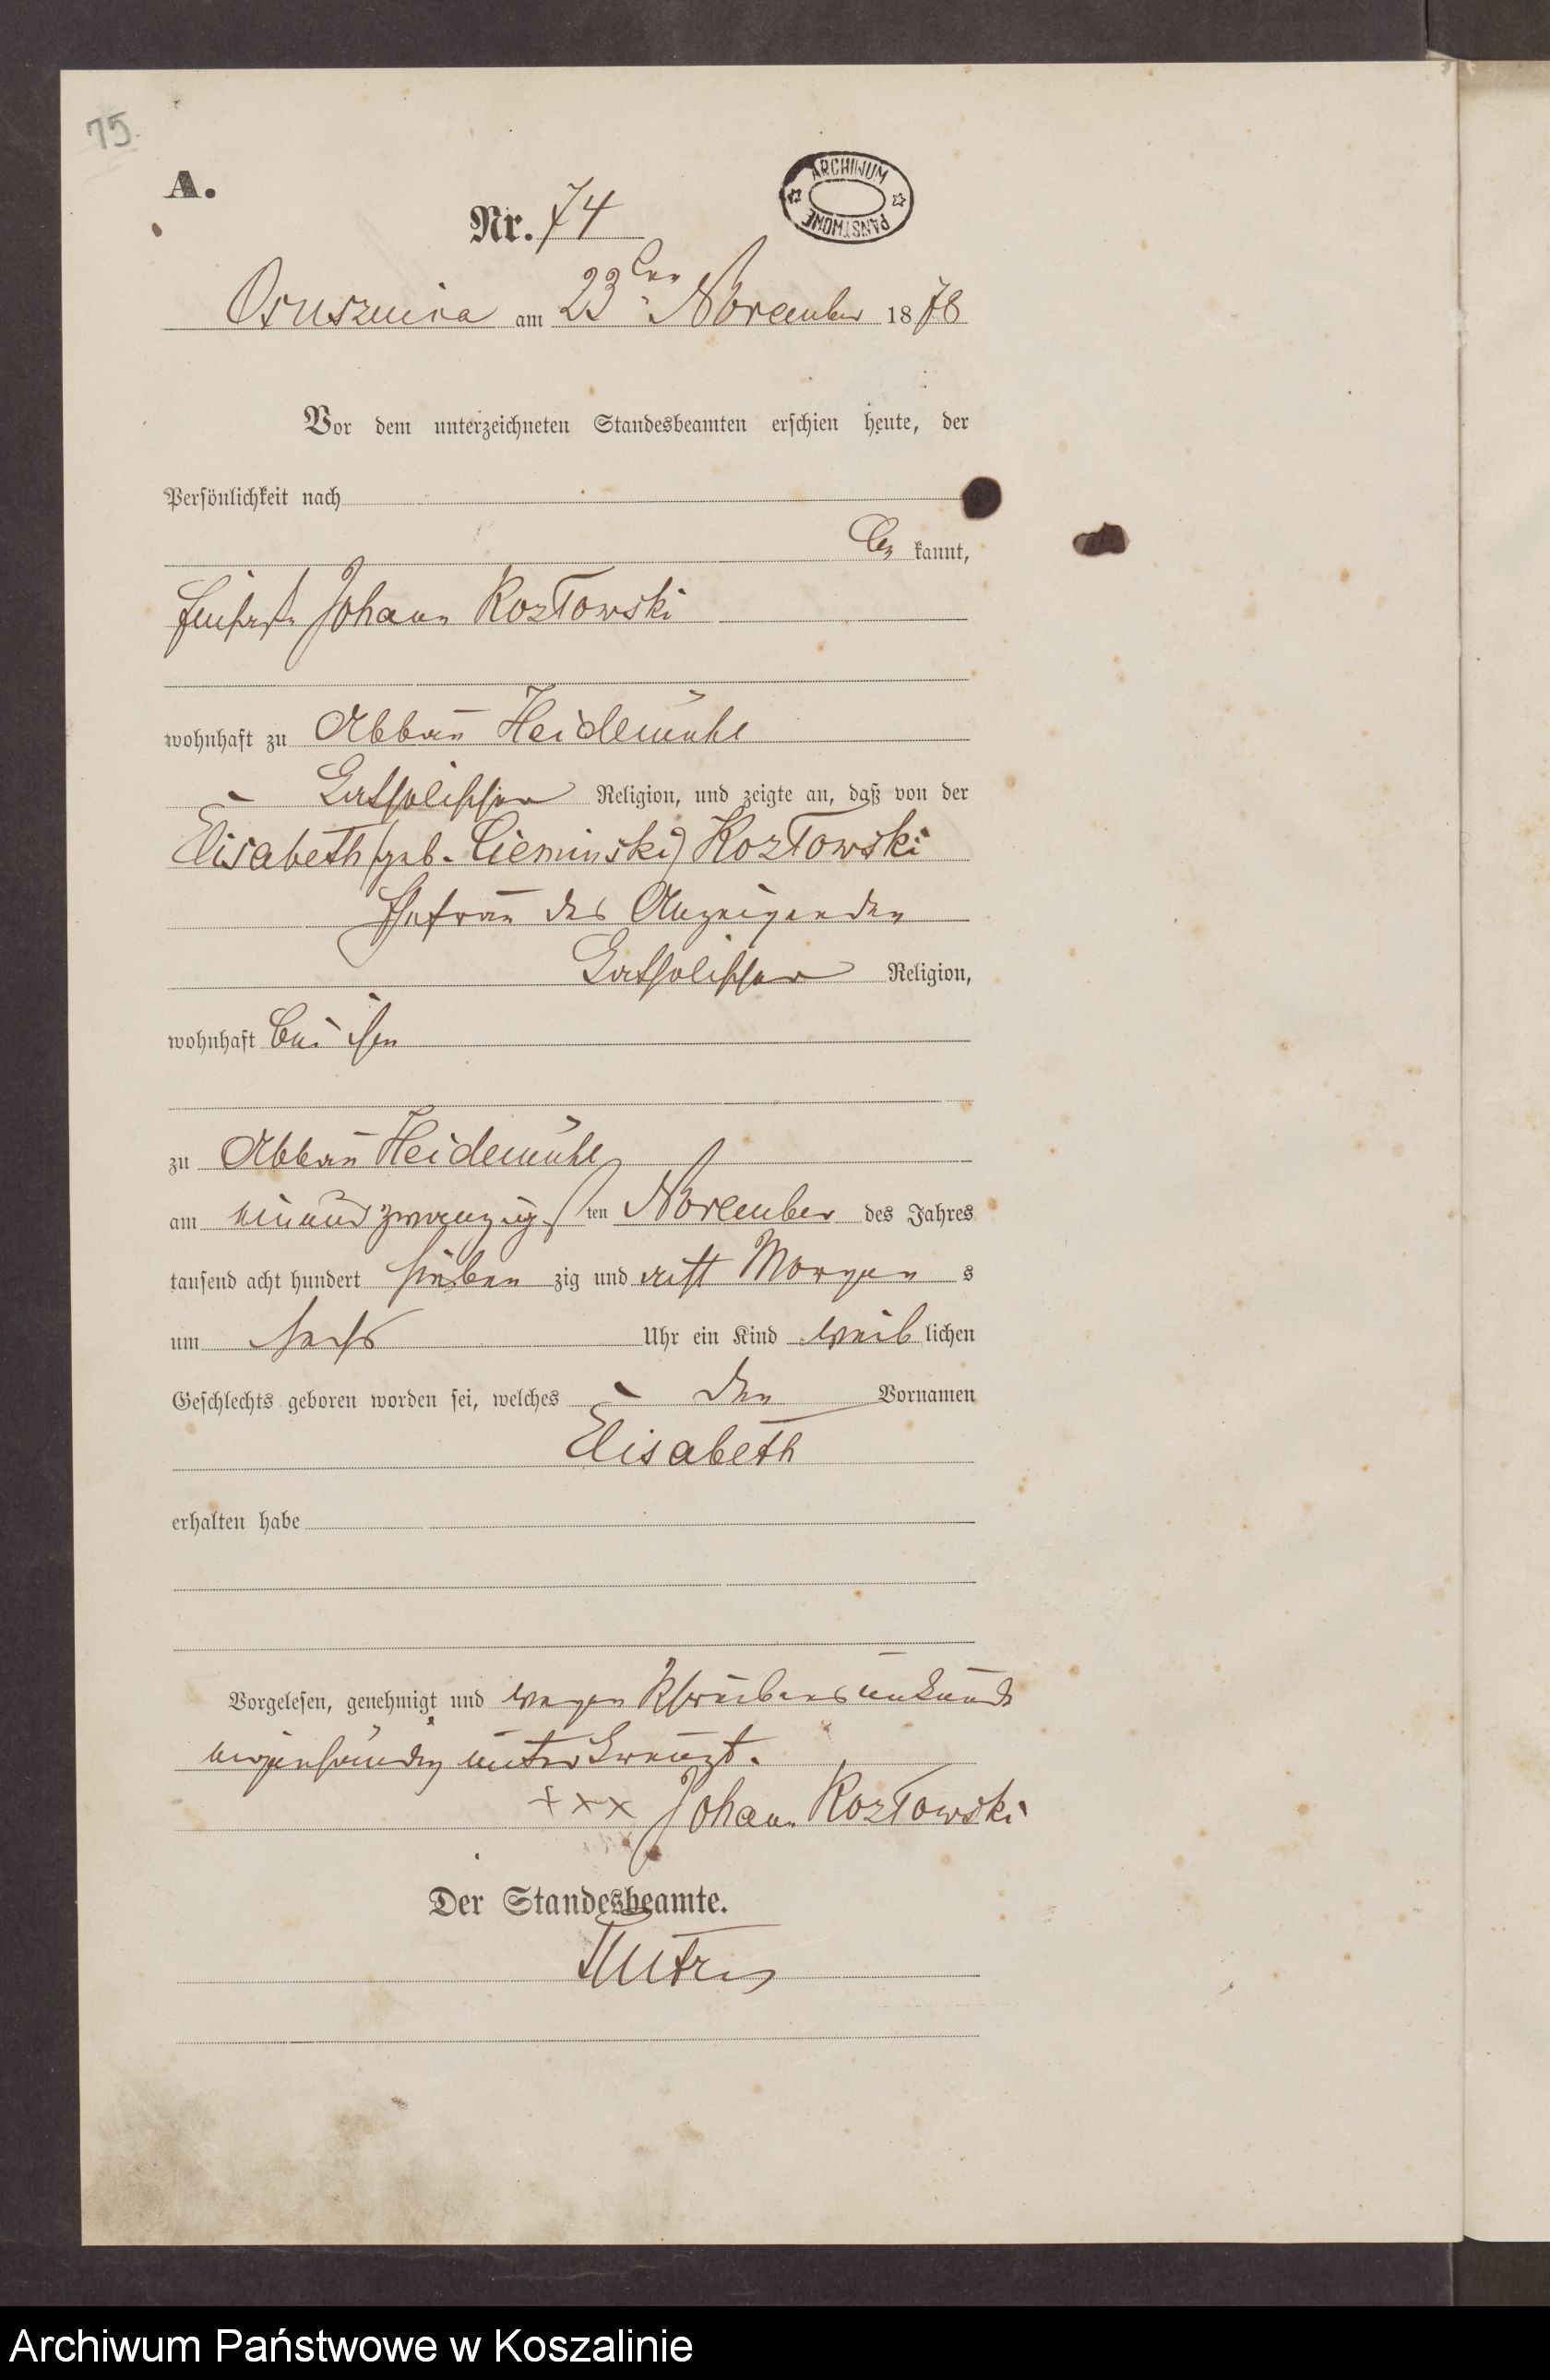 75.
A.
Nr. 74
ARCHIWUM
PAŃSTWOWE
Osusznica am 23ten November 1878
Vor dem unterzeichneten Standesbeamten erschien heute, der
Persönlichkeit nach
be kannt,
Johann Kozłowski
wohnhaft zu Abbau Heidemühl
katholischer Religion, und zeigte an, daß von der
Elisabeth (geb. Cieminski) Kozłowski
Ehefrau des Anzeigenden
katholischer Religion,
wohnhaft bei ihm
zu Abbau Heidemühl
am einundzwanzigsten November des Jahres
tausend acht hundert sieben zig und acht Morgen s
um sechs Uhr ein Kind weib lichen
Geschlechts geboren worden sei, welches den Vornamen
Elisabeth
erhalten habe
Vorgelesen, genehmigt und wegen Schreibensunkunde
eigenhändig unterkreuzt.
+ x x Johann Kozłowski
Der Standesbeamte.
Archiwum Państwowe w Koszalinie